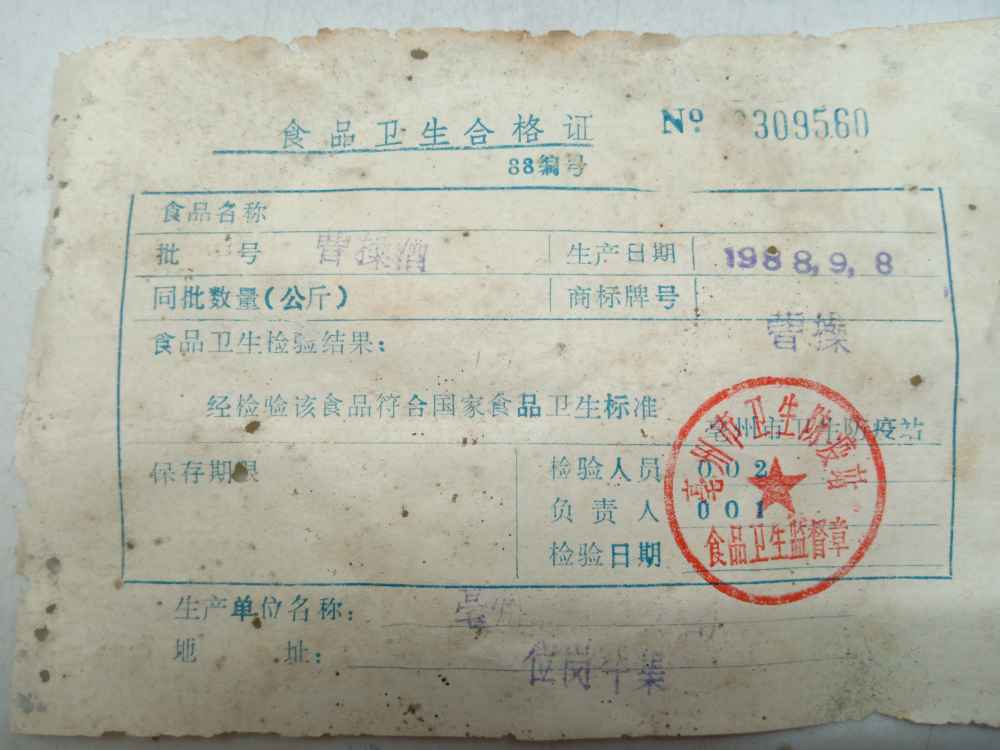 食品卫生合格证 № 309560
88编号
食品名称
批 号 曹操酒 生产日期 1988,9,8
同批数量(公斤) 商标牌号
曹操
食品卫生检验结果:
经检验该食品符合国家食品卫生标准
亳州市卫生防疫站
保存期限 检验人员 002
负责人 001
检验日期
亳州市卫生防疫站
食品卫生监督章
生产单位名称: 亳州
地 址: